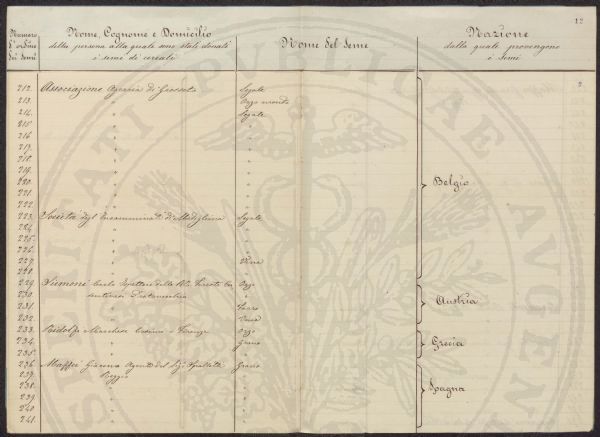 12
Numero d'ordine dei semi
Nome, Cognome e Domicilio
della persona alla quale sono stati donati
i semi di cereali
Nome del seme
Nazione
dalla quale provengono
i semi
212. Associazione Agraria di Grosseto Segale
213. " Orzo
214. " Segale
215. " "
216. " "
217. " "
218. " "
219. " "
220. " "
221. " "
222. " "
Belgio
223. Società degl' Incamminati di Modigliana Segale
224. " "
225. " "
226. " "
227. " Vena
228. " "
229. Siemoni Carlo Ispettore delle Orzo
230. "
231. "
232. " Vena
Austria
233. Ridolfi Marchese Cosimo Firenze Orzo
234. " Grano
235. " "
Grecia
236. Maffei Giovanni Agente del Grano
237. Reggio "
238. " "
239. " "
240. " "
241. " "
Spagna
SIGILLATI PUBLICAE AUGENT